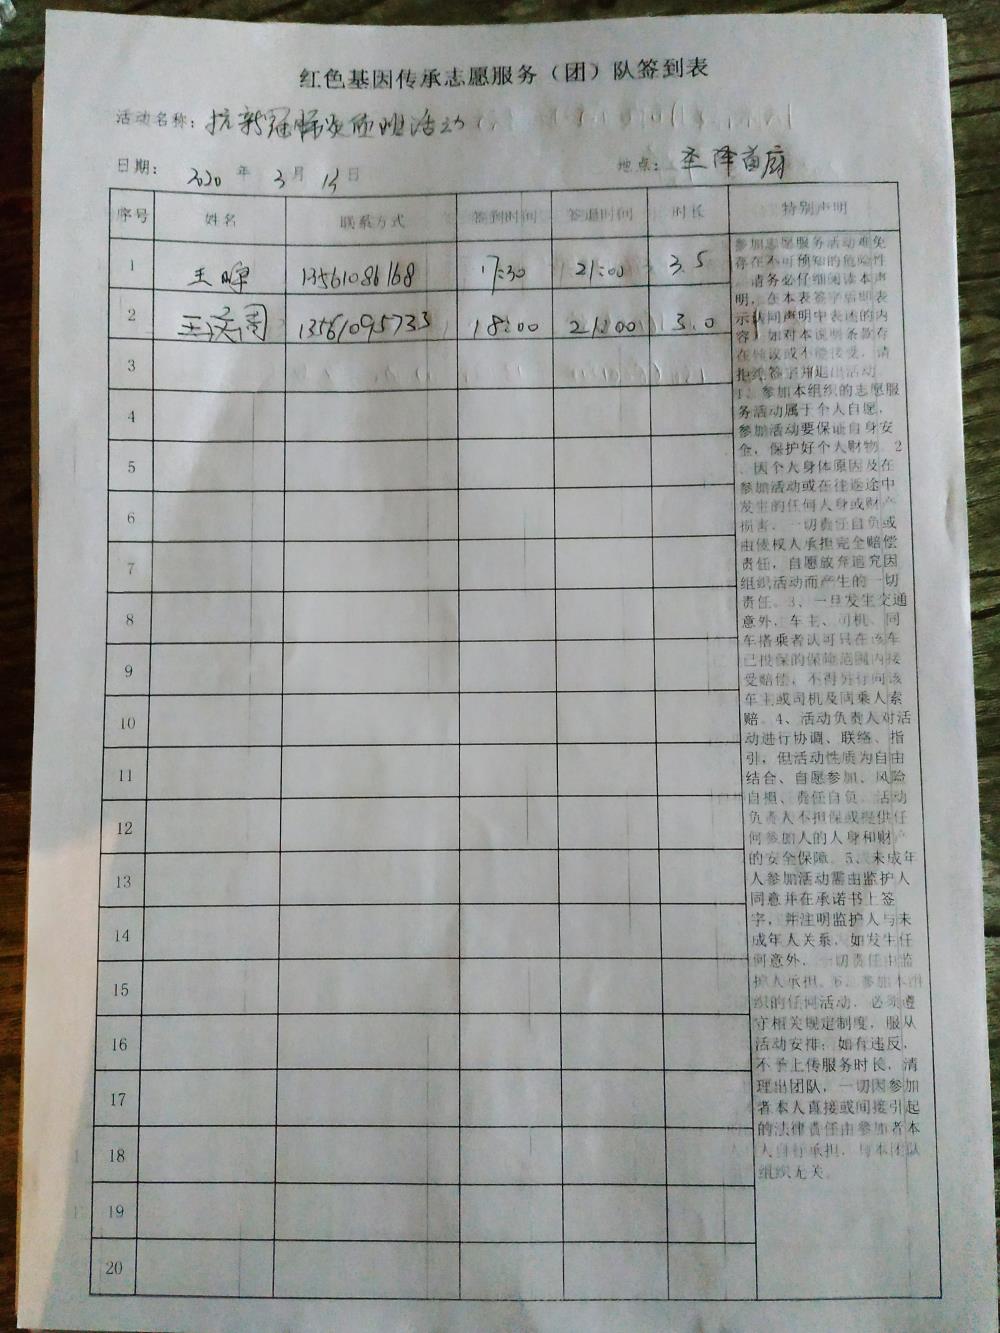 红色基因传承志愿服务（团）队签到表
活动名称：抗新冠肺炎值班活动
日期： 2020 年 3 月 日
地点： 圣泽首府
序号 姓名 联系方式 签到时间 签退时间 时长 特别声明
1 王晖 13561086168 17:30 21:00 3.5
2 王 13561095733 18:00 21:00 3.0
3
4
5
6
7
8
9
10
11
12
13
14
15
16
17
18
19
20
参加志愿服务活动难免
存在不可预知的危险性
，请务必仔细阅读本声
明，在本表签字后明表
示认同声明中表述的内
容！如对本说明条款存
在异议或不能接受，请
拒绝签字并退出活动
1、参加本组织的志愿服
务活动属于个人自愿，
参加活动要保证自身安
全，保护好个人财物。2
、因个人身体原因及在
参加活动或在往返途中
发生的任何人身或财产
损害，一切责任自负或
由侵权人承担完全赔偿
责任，自愿放弃追究因
组织活动而产生的一切
责任。3、一旦发生交通
意外，车主、司机、同
车搭乘者认可只在该车
已投保的保险范围内接
受赔偿，不得另行向该
车主或司机及同乘人索
赔。4、活动负责人对活
动进行协调、联络、指
引，但活动性质为自由
结合、自愿参加、风险
自担、责任自负。活动
负责人不担保或提供任
何参加人的人身和财产
的安全保障。5、未成年
人参加活动需由监护人
同意并在承诺书上签
字，并注明监护人与未
成年人关系，如发生任
何意外，一切责任由监
护人承担。6、参加本组
织的任何活动，必须遵
守相关规定制度，服从
活动安排；如有违反，
不予上传服务时长，清
理出团队，一切因参加
者本人直接或间接引起
的法律责任由参加者本
人自行承担，与本团队
组织无关。